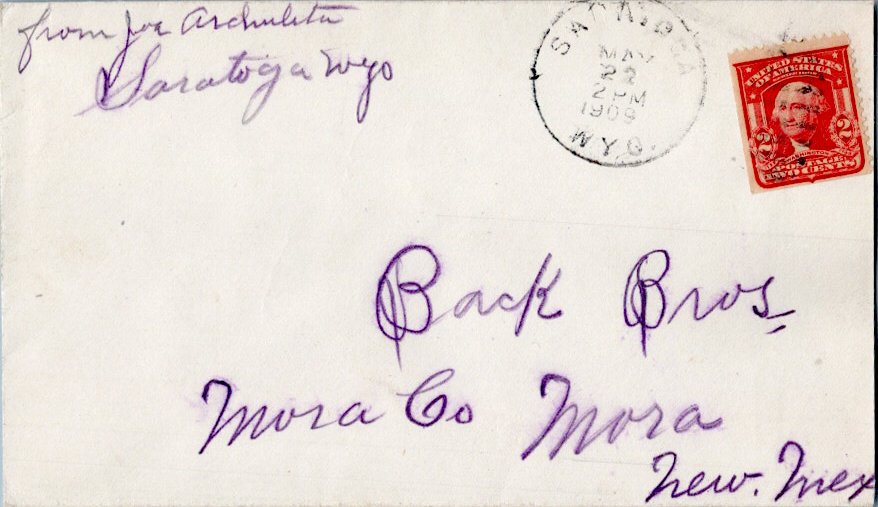 from Joe Archuleta
Saratoga Wyo
SARATOGA
MAY
22
2 PM
190
WYO.
UNITED STATES
OF AMERICA
2 2
POSTAGE
TWO CENTS
Back Bros
Mora Co Mora
New. Mex